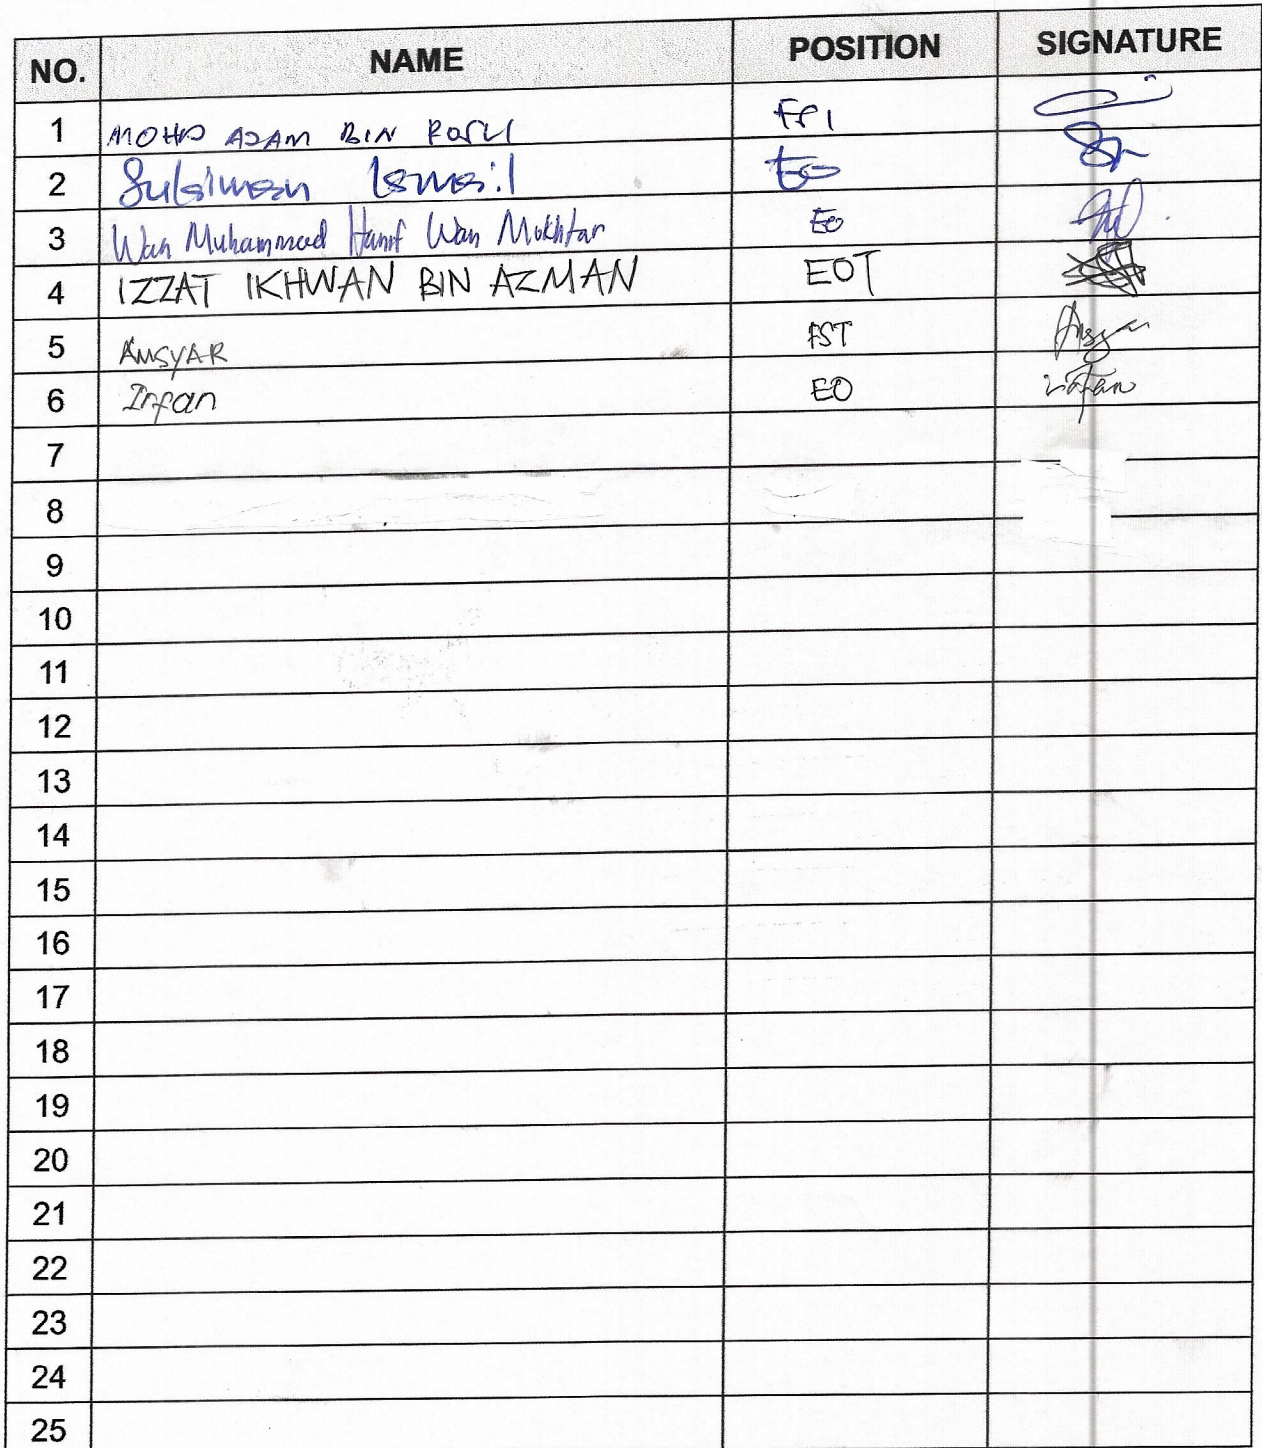 NO. NAME POSITION SIGNATURE
1 MOHD AZAM BIN ROSLI FPI
2 Sulaiman Ismail EO
3 Wan Muhammad Hanif Wan Mokhtar EO
4 IZZAT IKHWAN BIN AZMAN EOT
5 AMSYAR FST Amsyar
6 Irfan EO irfan
7
8
9
10
11
12
13
14
15
16
17
18
19
20
21
22
23
24
25